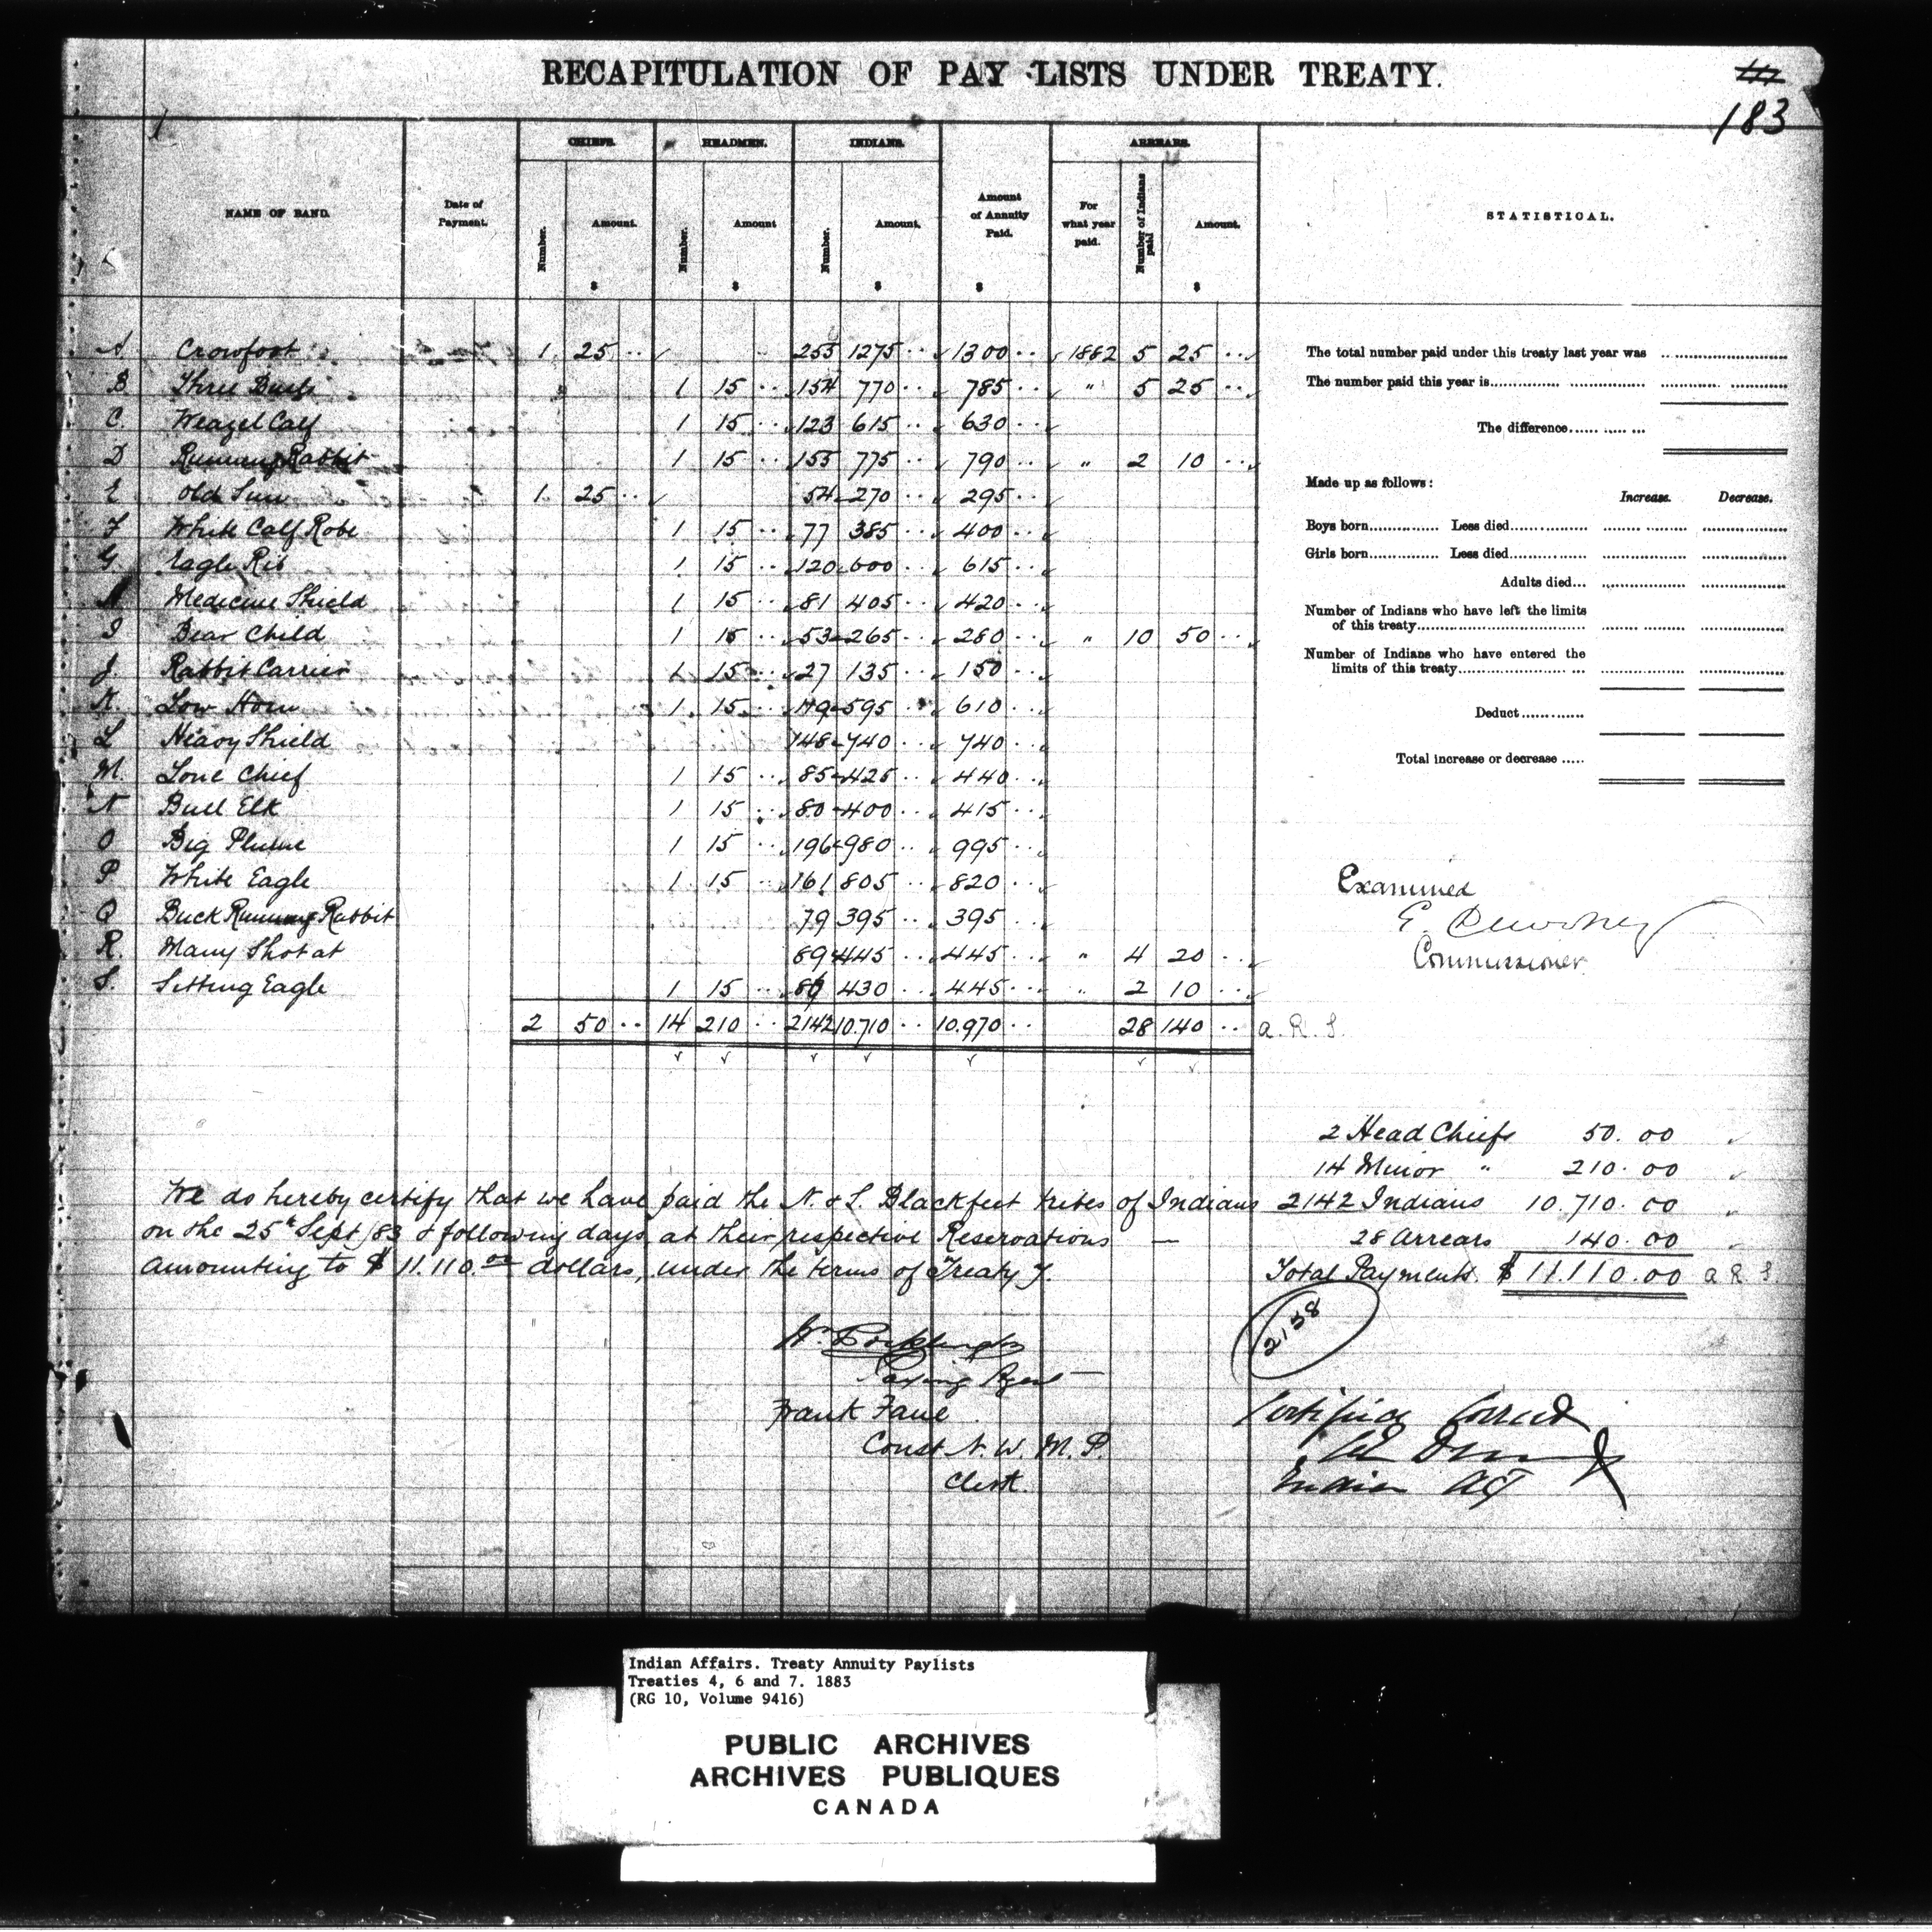 RECAPITULATION OF PAY LISTS UNDER TREATY.
183
CHIEFS. HEADMEN. INDIANS. ARREARS.
NAME OF BAND. Date of Payment. Number. Amount. Number. Amount Number. Amount. Amount of Annuity Paid. For what year paid. Number of Indians paid Amount. STATISTICAL.
$ $ $ $ $
A Crowfoot 1 25 .. 255 1275 .. 1300 .. 1882 5 25 ..
B. Three Bulls 1 15 .. 154 770 .. 785 .. " 5 25 ..
C. Weazel Calf 1 15 .. 123 615 .. 630 ..
D Running Rabbit 1 15 .. 155 775 .. 790 .. " 2 10 ..
E Old Sun 1 25 .. 54 270 .. 295 ..
F White Calf Robe 1 15 .. 77 385 .. 400 ..
G. Eagle Rib 1 15 .. 120 600 .. 615 ..
H Medicine Shield 1 15 .. 81 405 .. 420 ..
I Bear Child 1 15 .. 53 265 .. 280 .. " 10 50 ..
J. Rabbit Carrier 1 15 .. 27 135 .. 150 ..
K. Low Horn 1 15 .. 119 595 .. 610 ..
L Heavy Shield 148 740 .. 740 ..
M. Lone Chief 1 15 .. 85 425 .. 440 ..
N Bull Elk 1 15 .. 80 400 .. 415 ..
O Big Plume 1 15 .. 196 980 .. 995 ..
P White Eagle 1 15 .. 161 805 .. 820 ..
Q Buck Running Rabbit 79 395 .. 395 ..
R. Many Shot at 89 445 .. 445 .. " 4 20 ..
S. Sitting Eagle 1 15 .. 86 430 .. 445 .. " 2 10 ..
2 50 .. 14 210 .. 2142 10.710 .. 10.970 .. 28 140 .. a. R. S.
The total number paid under this treaty last year was
The number paid this year is
The difference
Made up as follows:
Increase. Decrease.
Boys born Less died
Girls born Less died
Adults died
Number of Indians who have left the limits
of this treaty
Number of Indians who have entered the
limits of this treaty
Deduct
Total increase or decrease
Examined
E. Dewdney
Commissioner
2 Head Chiefs 50.00
14 Minor " 210.00
2142 Indians 10.710.00
28 Arrears 140.00
Total Payments. $ 11.110.00 a R S
2158
We do hereby certify that we have paid the N. & S. Blackfeet tribes of Indians
on the 25th Sept /83 & following days at their respective Reservations —
amounting to $ 11.110.00 dollars, under the terms of Treaty 7.
W. Pocklington
Paying Agent
Frank Fane
Const N. W. M. P.
Clerk.
Certified Correct
Indian Agt
Indian Affairs. Treaty Annuity Paylists
Treaties 4, 6 and 7. 1883
(RG 10, Volume 9416)
PUBLIC ARCHIVES
ARCHIVES PUBLIQUES
CANADA